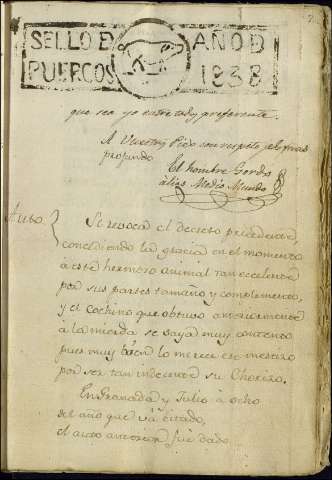 SELLO D
AÑO D
PUERCOS
1838
que sea yo entre todos preferente.
A Vuestros Pies con respeto el mas
profundo
El hombre Gordo
álias Medio Mundo
Auto.
Se revoca el decreto precedente
concediendo la gracia en el momento
á este hermoso animal tan excelente
por sus partes tamaño y complemento,
y el cochino que obtuvo anteriormente
á la mierda se vaya muy contento
pues muy bien lo merece ese mestizo
por ser tan indecente su Chorizo.
En Granada y Julio á ocho
del año que vá citado,
el auto anterior fué dado